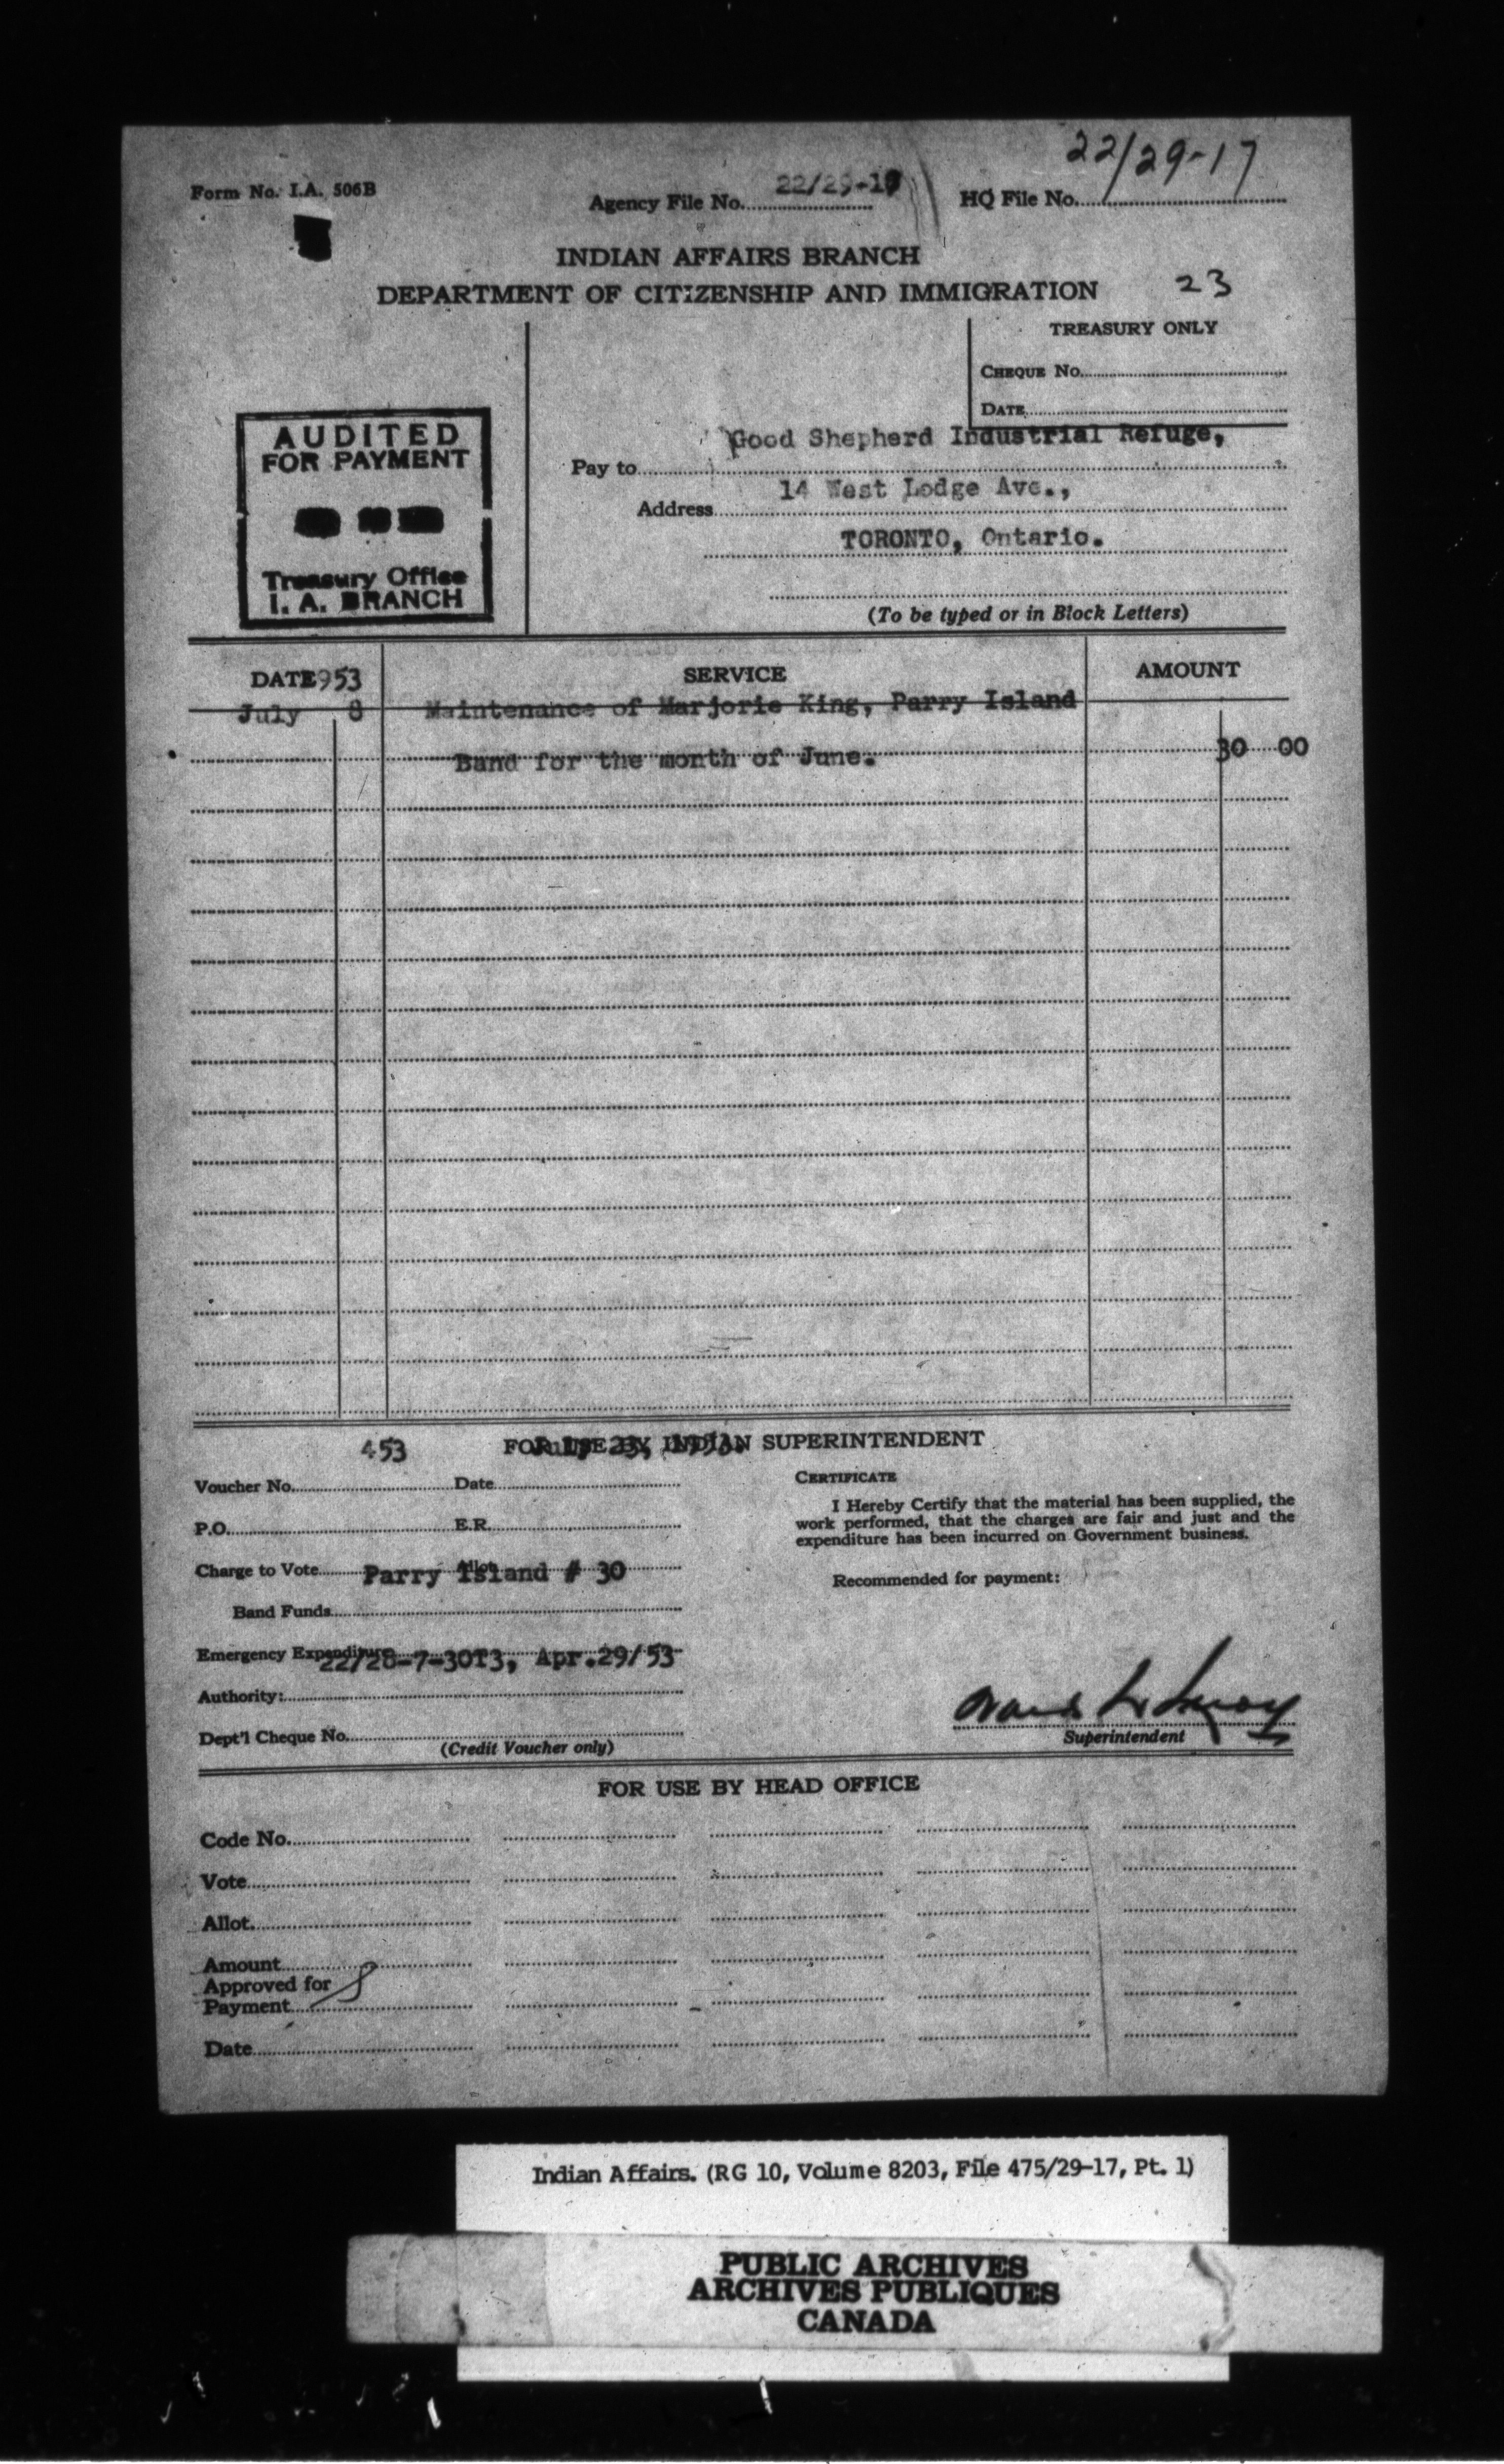 22/29-17
Form No. I.A. 506B
Agency File No. 22/29-17
HQ File No.
INDIAN AFFAIRS BRANCH
DEPARTMENT OF CITIZENSHIP AND IMMIGRATION
23
TREASURY ONLY
CHEQUE No.
DATE
AUDITED
FOR PAYMENT
Treasury Office
I. A. BRANCH
Pay to Good Shepherd Industrial Refuge,
Address 14 West Lodge Ave.,
TORONTO, Ontario.
(To be typed or in Block Letters)
DATE 1953 SERVICE AMOUNT
July 8 Maintenance of Marjorie King, Parry Island
Band for the month of June. 30 00
FOR USE BY INDIAN SUPERINTENDENT
453
Voucher No. Date
P.O. E.R.
Charge to Vote Allot.
Parry Island # 30
Band Funds
Emergency Expenditure
22/28-7-30T3, Apr.29/53
Authority:
Dept'l Cheque No.
(Credit Voucher only)
CERTIFICATE
I Hereby Certify that the material has been supplied, the
work performed, that the charges are fair and just and the
expenditure has been incurred on Government business.
Recommended for payment:
Superintendent
FOR USE BY HEAD OFFICE
Code No.
Vote
Allot.
Amount
Approved for
Payment
Date
Indian Affairs. (RG 10, Volume 8203, File 475/29-17, Pt. 1)
PUBLIC ARCHIVES
ARCHIVES PUBLIQUES
CANADA